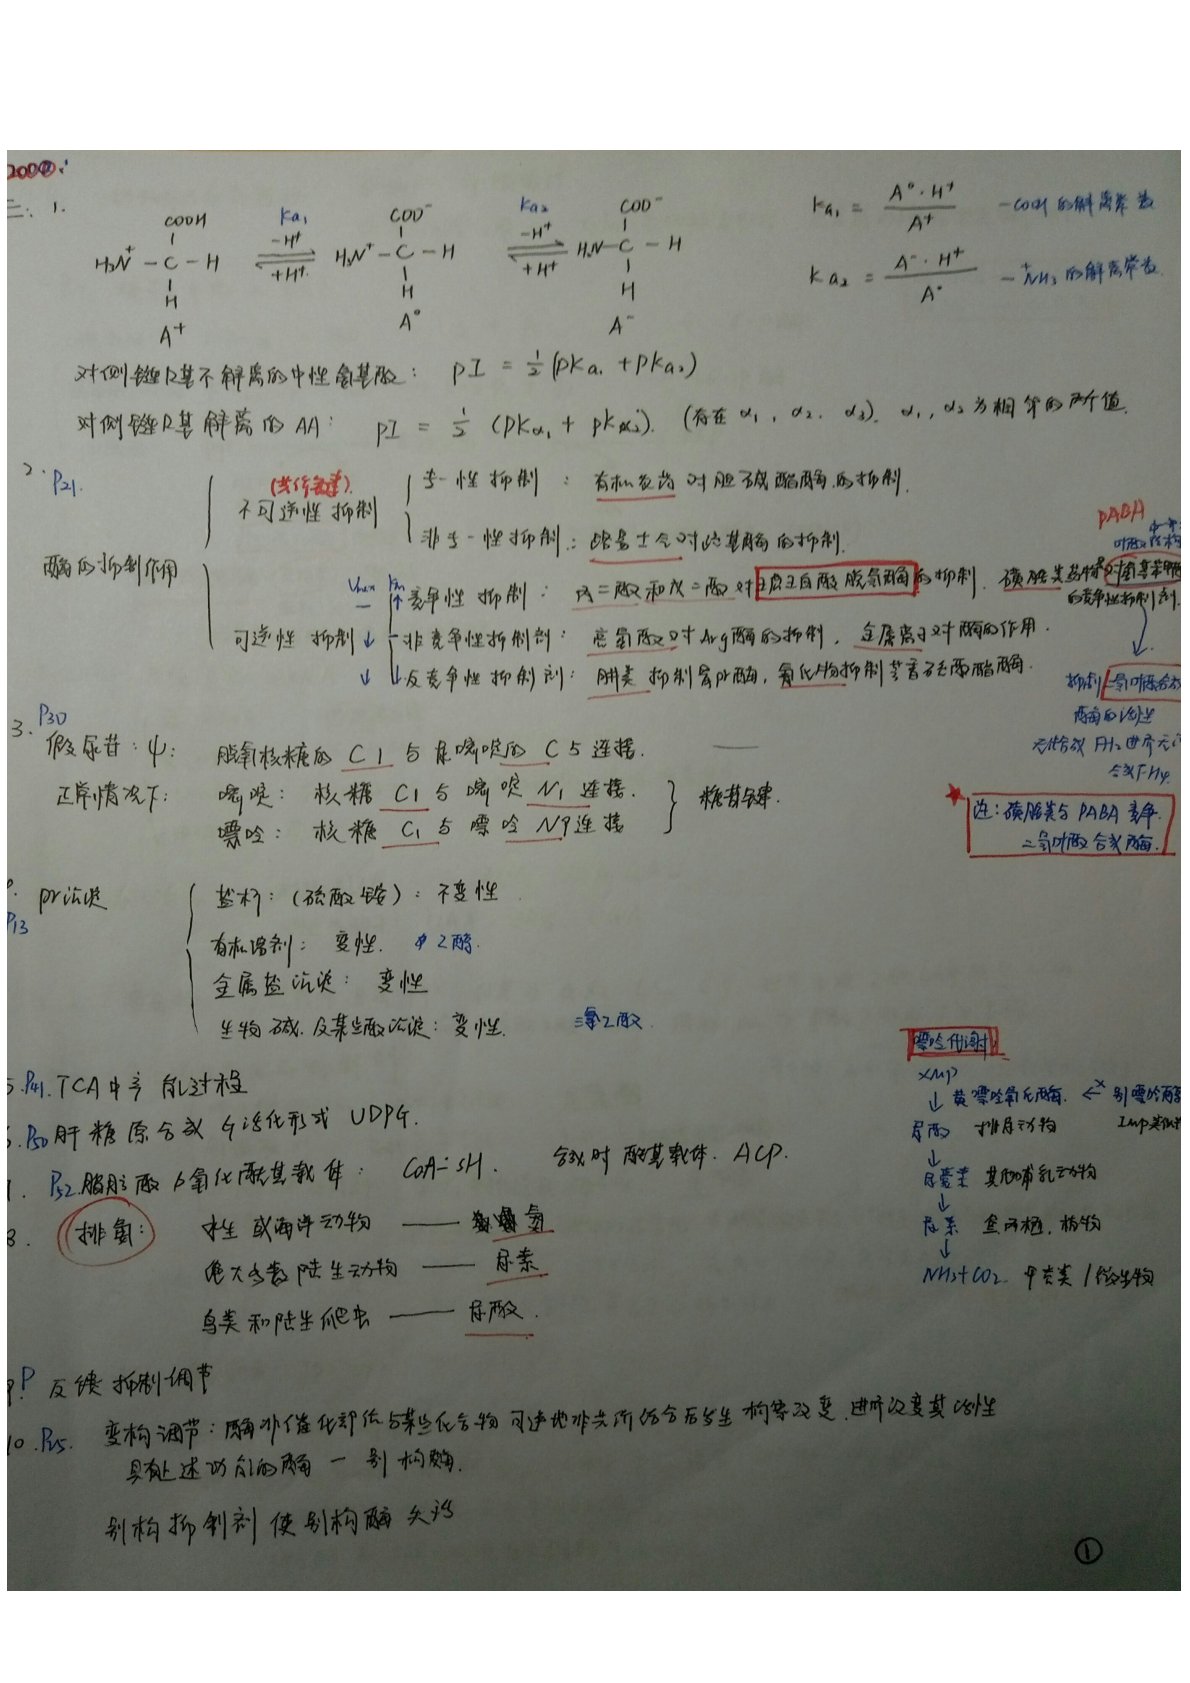 三: 1.
COOH
H₃N⁺ — C — H
H
A⁺
Ka₁
-H⁺
+H⁺
COO⁻
H₃N⁺ — C — H
H
A°
Ka₂
-H⁺
+H⁺
COO⁻
H₂N — C — H
H
A⁻
Ka₁ = A°·H⁺ / A⁺ —COOH的解离常数
Ka₂ = A⁻·H⁺ / A° —⁺NH₃的解离常数
对侧链R基不解离的中性氨基酸: pI = ½(pKa₁ + pKa₂)
对侧链R基解离的AA: pI = ½ (pKα₁ + pKα₂). (存在α₁, α₂, α₃). α₁, α₂为相邻的两个值.
2. P21.
酶的抑制作用
(共价键)
不可逆性抑制
专一性抑制: 有机农药对胆碱酯酶的抑制.
非专一性抑制: 路易士气对巯基酶的抑制.
可逆性抑制
Vmax Km
— ↑ 竞争性抑制: 丙二酸和戊二酸对琥珀酸脱氢酶的抑制. 磺胺类药物
↓ — 非竞争性抑制剂: 对Arg酶的抑制, 金属离子对酶的作用.
↓ ↓ 反竞争性抑制剂: 肼类抑制胃pr酶, 氰化物抑制芳香硫酸酯酶.
PABA
对氨基苯甲酸
的竞争性抑制剂.
抑制二氢叶酸合成
酶的活性
合成FH₄.
★ 注: 磺胺类与PABA竞争
二氢叶酸合成酶.
3. P30
假尿苷: ψ: 脱氧核糖的C1与尿嘧啶的C5连接.
正常情况下: 嘧啶: 核糖C1与嘧啶N1连接.
嘌呤: 核糖C1与嘌呤N9连接
糖苷键.
P13
pr沉淀
盐析: (硫酸铵): 不变性
有机溶剂: 变性. 乙醇.
金属盐沉淀: 变性
生物碱及某些酸沉淀: 变性. 三氯乙酸.
5. P41. TCA中产能过程
6. P50 肝糖原合成 G活化形式 UDPG.
P52. 脂肪酸β氧化酰基载体: CoA-SH. 合成时酰基载体. ACP.
8. 排氨: 水生或海洋动物 —— 氨
绝大多数陆生动物 —— 尿素
鸟类和陆生爬虫 —— 尿酸.
嘌呤代谢
XMP
↓ 黄嘌呤氧化酶. ← x 别嘌呤醇
尿酸 排尿动物
↓
尿囊素 其他哺乳动物
↓
尿素 鱼两栖, 植物
↓
NH₃+CO₂ 甲壳类/微生物
9? P 反馈抑制调节
10. P25. 变构调节: 酶非催化部位与某些化合物可逆地非共价结合后发生构象改变, 进而改变其活性
具有上述功能的酶 — 别构酶.
别构抑制剂使别构酶失活
①